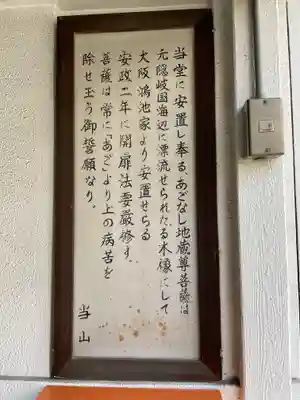 当堂に安置し奉る、あごなし地蔵尊菩薩は
元隠岐国海辺に漂流せられたる木像にして
大阪鴻池家より安置せらる
安政二年に開扉法要厳修す、
菩薩は常に「あご」より上の病苦を
除せ玉う御誓願なり。
当山